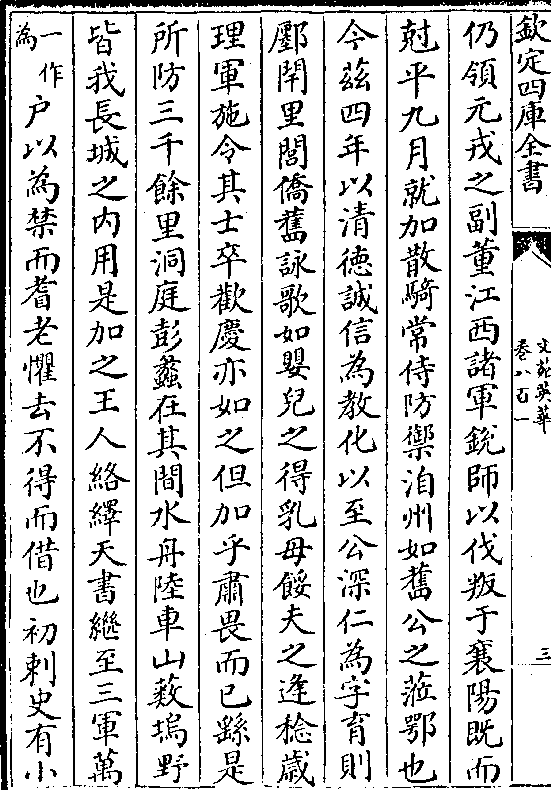 欽定四庫全書
文苑英華
卷八百一
三
仍領元戎之副董江西諸軍銳師以伐叛于襄陽既而
尅平九月就加散騎常侍防禦洎州如舊公之蒞鄂也
今茲四年以清徳誠信為教化以至公深仁為字育則
酆閈里閭僑舊詠歌如嬰兒之得乳母餒夫之逢稔歳
理軍施令其士卒歡慶亦如之但加乎肅畏而已繇是
所防三千餘里洞庭彭蠡在其間水舟陸車山藪塢野
皆我長城之内用是加之王人絡繹天書繼至三軍萬
一作為户以為禁而耆老懼去不得而借也初刺史有小